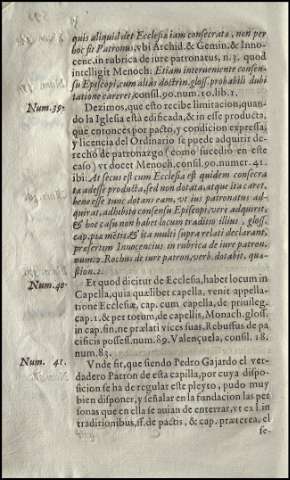 quis aliquid det Ecclesiæ iam consecratæ, non per
hoc fit Patronus, vbi Archid. & Gemin. & Inno-
cenc. in rubrica de iure patronatus, n. 3. quod
intelligit Menoch. Etiam interueniente consen-
su Episcopi, cum alias doctrin. gloss. probabili dubi
tatione careret, consil. 90. num. 10. lib. 1.
Num. 39. Dezimos, que esto recibe limitacion, quan-
do la Iglesia està edificada, & in esse producta,
que entonces por pacto, y condicion expressa,
y licencia del Ordinario se puede adquirir de-
recho de patronazgo (como sucedio en este
caso) vt docet Menoch. consil. 90. numer. 41.
ibi. At secus est cum Ecclesia est quidem consecra
ta adesse producta, sed non dotata, at que ita caret,
bene esse tunc dotans eam, vt ius patronatus ad-
quirat, adhibito consensu Episcopi, vere adquirit,
& hoc casu non habet locum traditū illius, gloss.
cap. piæ mẽtis, & ita multi supra relati declarant,
præsertim Innocencius in rubrica de iure patron.
num. 2. Rochus de iur patron. verb. dotabit. quæ-
stion. 2.
Num. 40. Et quod dicitur de Ecclesia, habet locum in
Capella, quia qualibet capella, venit appella-
tione Ecclesiæ, cap. cum capella, de priuileg.
cap. 1. & per totum, de capellis, Monach. gloss.
in cap. sin, ne prælati vices suas, Rebuffus de pa
cificis possess. num. 89. Valençuela, consil. 18.
num. 83.
Num. 41. Vnde fit, que siendo Pedro Gajardo el ver-
dadero Patron de esta capilla, por cuya dispo-
sicion se ha de regular este pleyto, pudo muy
bien disponer, y señalar en la fundacion las per
sonas que en ella se auian de enterrar, vt ex l. in
traditionibus, ff. de pactis, & cap. præterea, el
se-